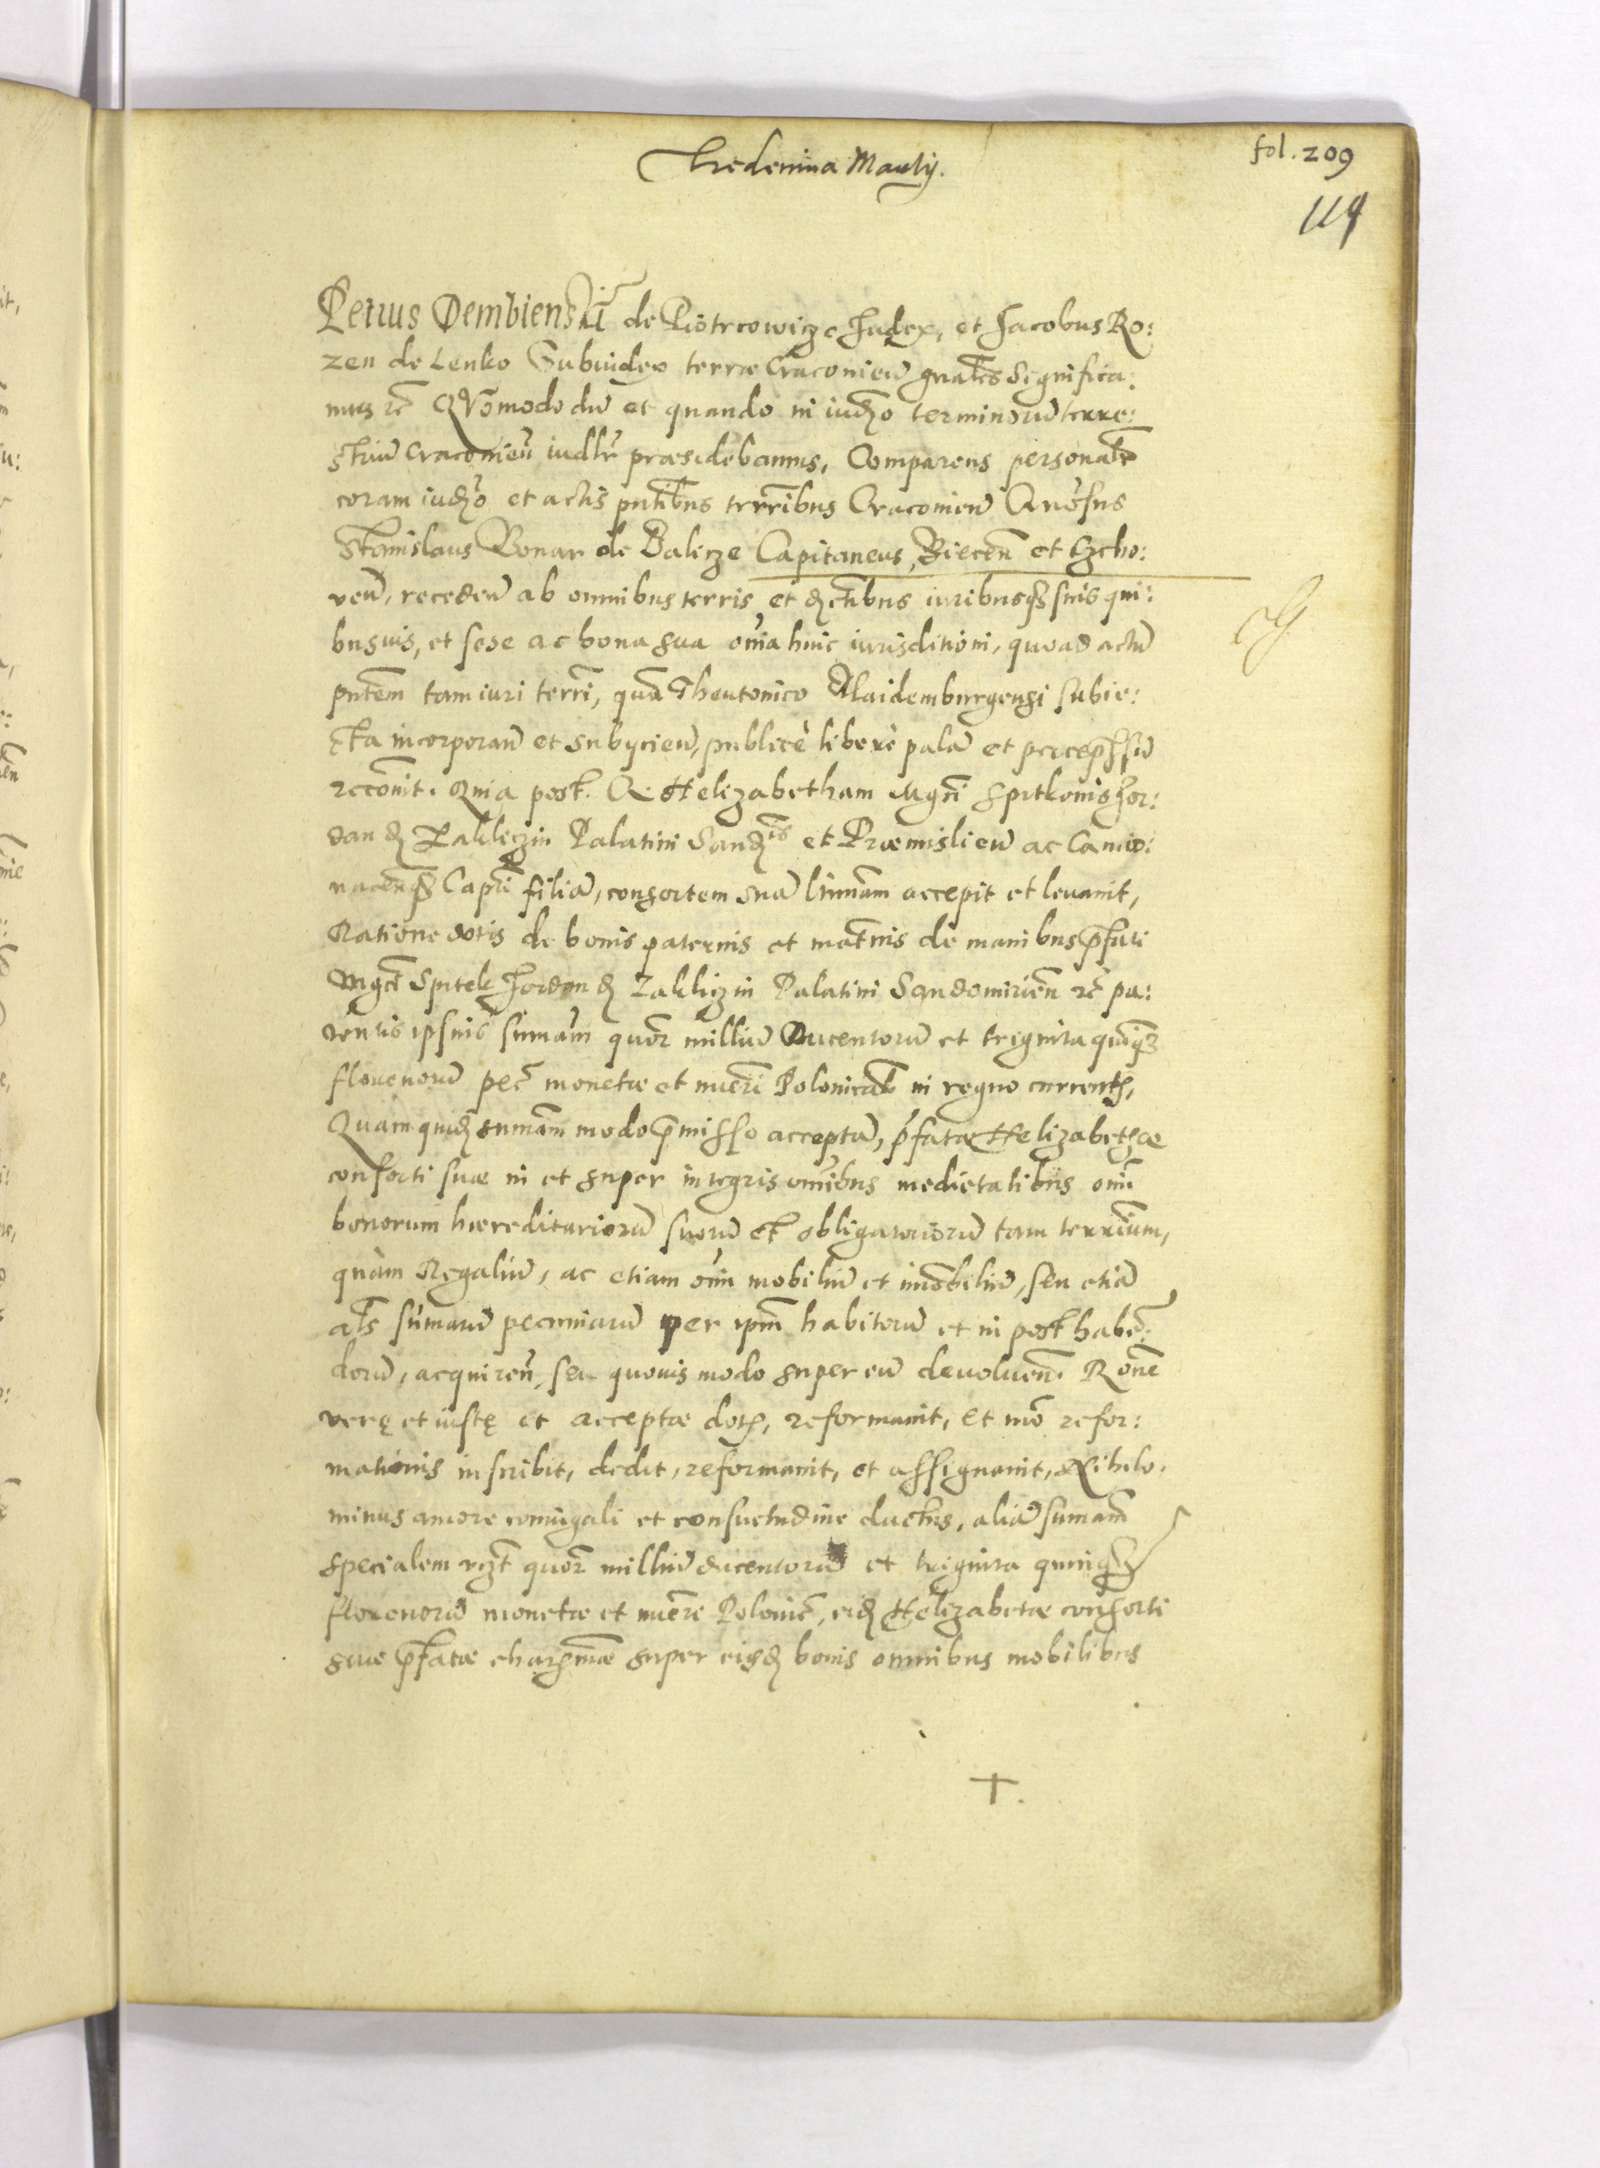 fol. 209
119
Petrus Dembienski de Piotrcowicze Judex, et Jacobus Ro:
zen de Lenko Subiudex terræ Cracovien̄ gnal̄rs significa:
mus rc̄ Qvomodo dū et quando in iud̄o terminorū terre:
striū Cracovien̄ iudlr̄ præsidebamus, Comparens personalr̄
coram iud̄o et actis pnt̄ibus trrībus Cracovien̄ Gn̄osus
Stanislaus Bonar de Balicze Capitaneus, Biecen̄ et Czcho:
vien̄, receden̄ ab omnibus terris et dc̄ibus iuribusq₃ suis qui:
busuis, et sese ac bona sua om̄ia huic iurisditioni, quoad actū
pntēm tam iuri terr̄i, quā Theutonico Maidemburgensi subie:
cta incorporan̄ et subycien̄, publicè liberè palā et per expr̄ssū
recōnit. Quia post G. Helizabetham Mgc̄i Spitkonis Jor:
dan de Zakliczin Palatini Sand. et Præmislien̄ ac Camio:
nacen̄q₃ Cap̄ti filiā, consortem suā ltīmam accepit et levavit,
Ratione dotis de bonis paternis et mat̄nis de manibus p̄fati
Mgc̄i Spitek Jordan de Zakliczin Palatini Sandomirien̄ rc̄ pa:
rentis ipsius sum̄am quor̄ milliū Ducentorū et triginta quīq₃
florenorū pec̄ monetæ et nuer̄i Polonical̄ in regno currents,
Quam quid̄ sumam̄ modo p̄misso acceptā, p̄fatæ Helizabethæ
consorti suæ in et super integris om̄ibus medietatibus om̄i
bonorum hæreditariorū suorū et obligatoriorū tam terr̄ium,
quàm Regaliū, ac etiam om̄i mobiliū et im̄obiliū, seu etiā
al̄s sum̄arū pecuniarū per ipm̄ habitorū et in post habēn:
dorū, acquiren̄, seu quovis modo super eū devolven̄. Rōne
verę et iustę et acceptæ dotis, reformavit, Et mō refor:
mationis inscribit, dedit, reformavit, et assignavit, Nihilo:
minus amore coniugali et consuetudine ductus, aliā sumam̄
specialem vzt̄ quor̄ milliū ducentorū et triginta quinq₃
florenorū monetæ et nuer̄i Polonic̄, eid̄ Helizabetæ consorti
suæ p̄fatæ charis̄mæ super eisd̄ bonis omnibus mobilibus